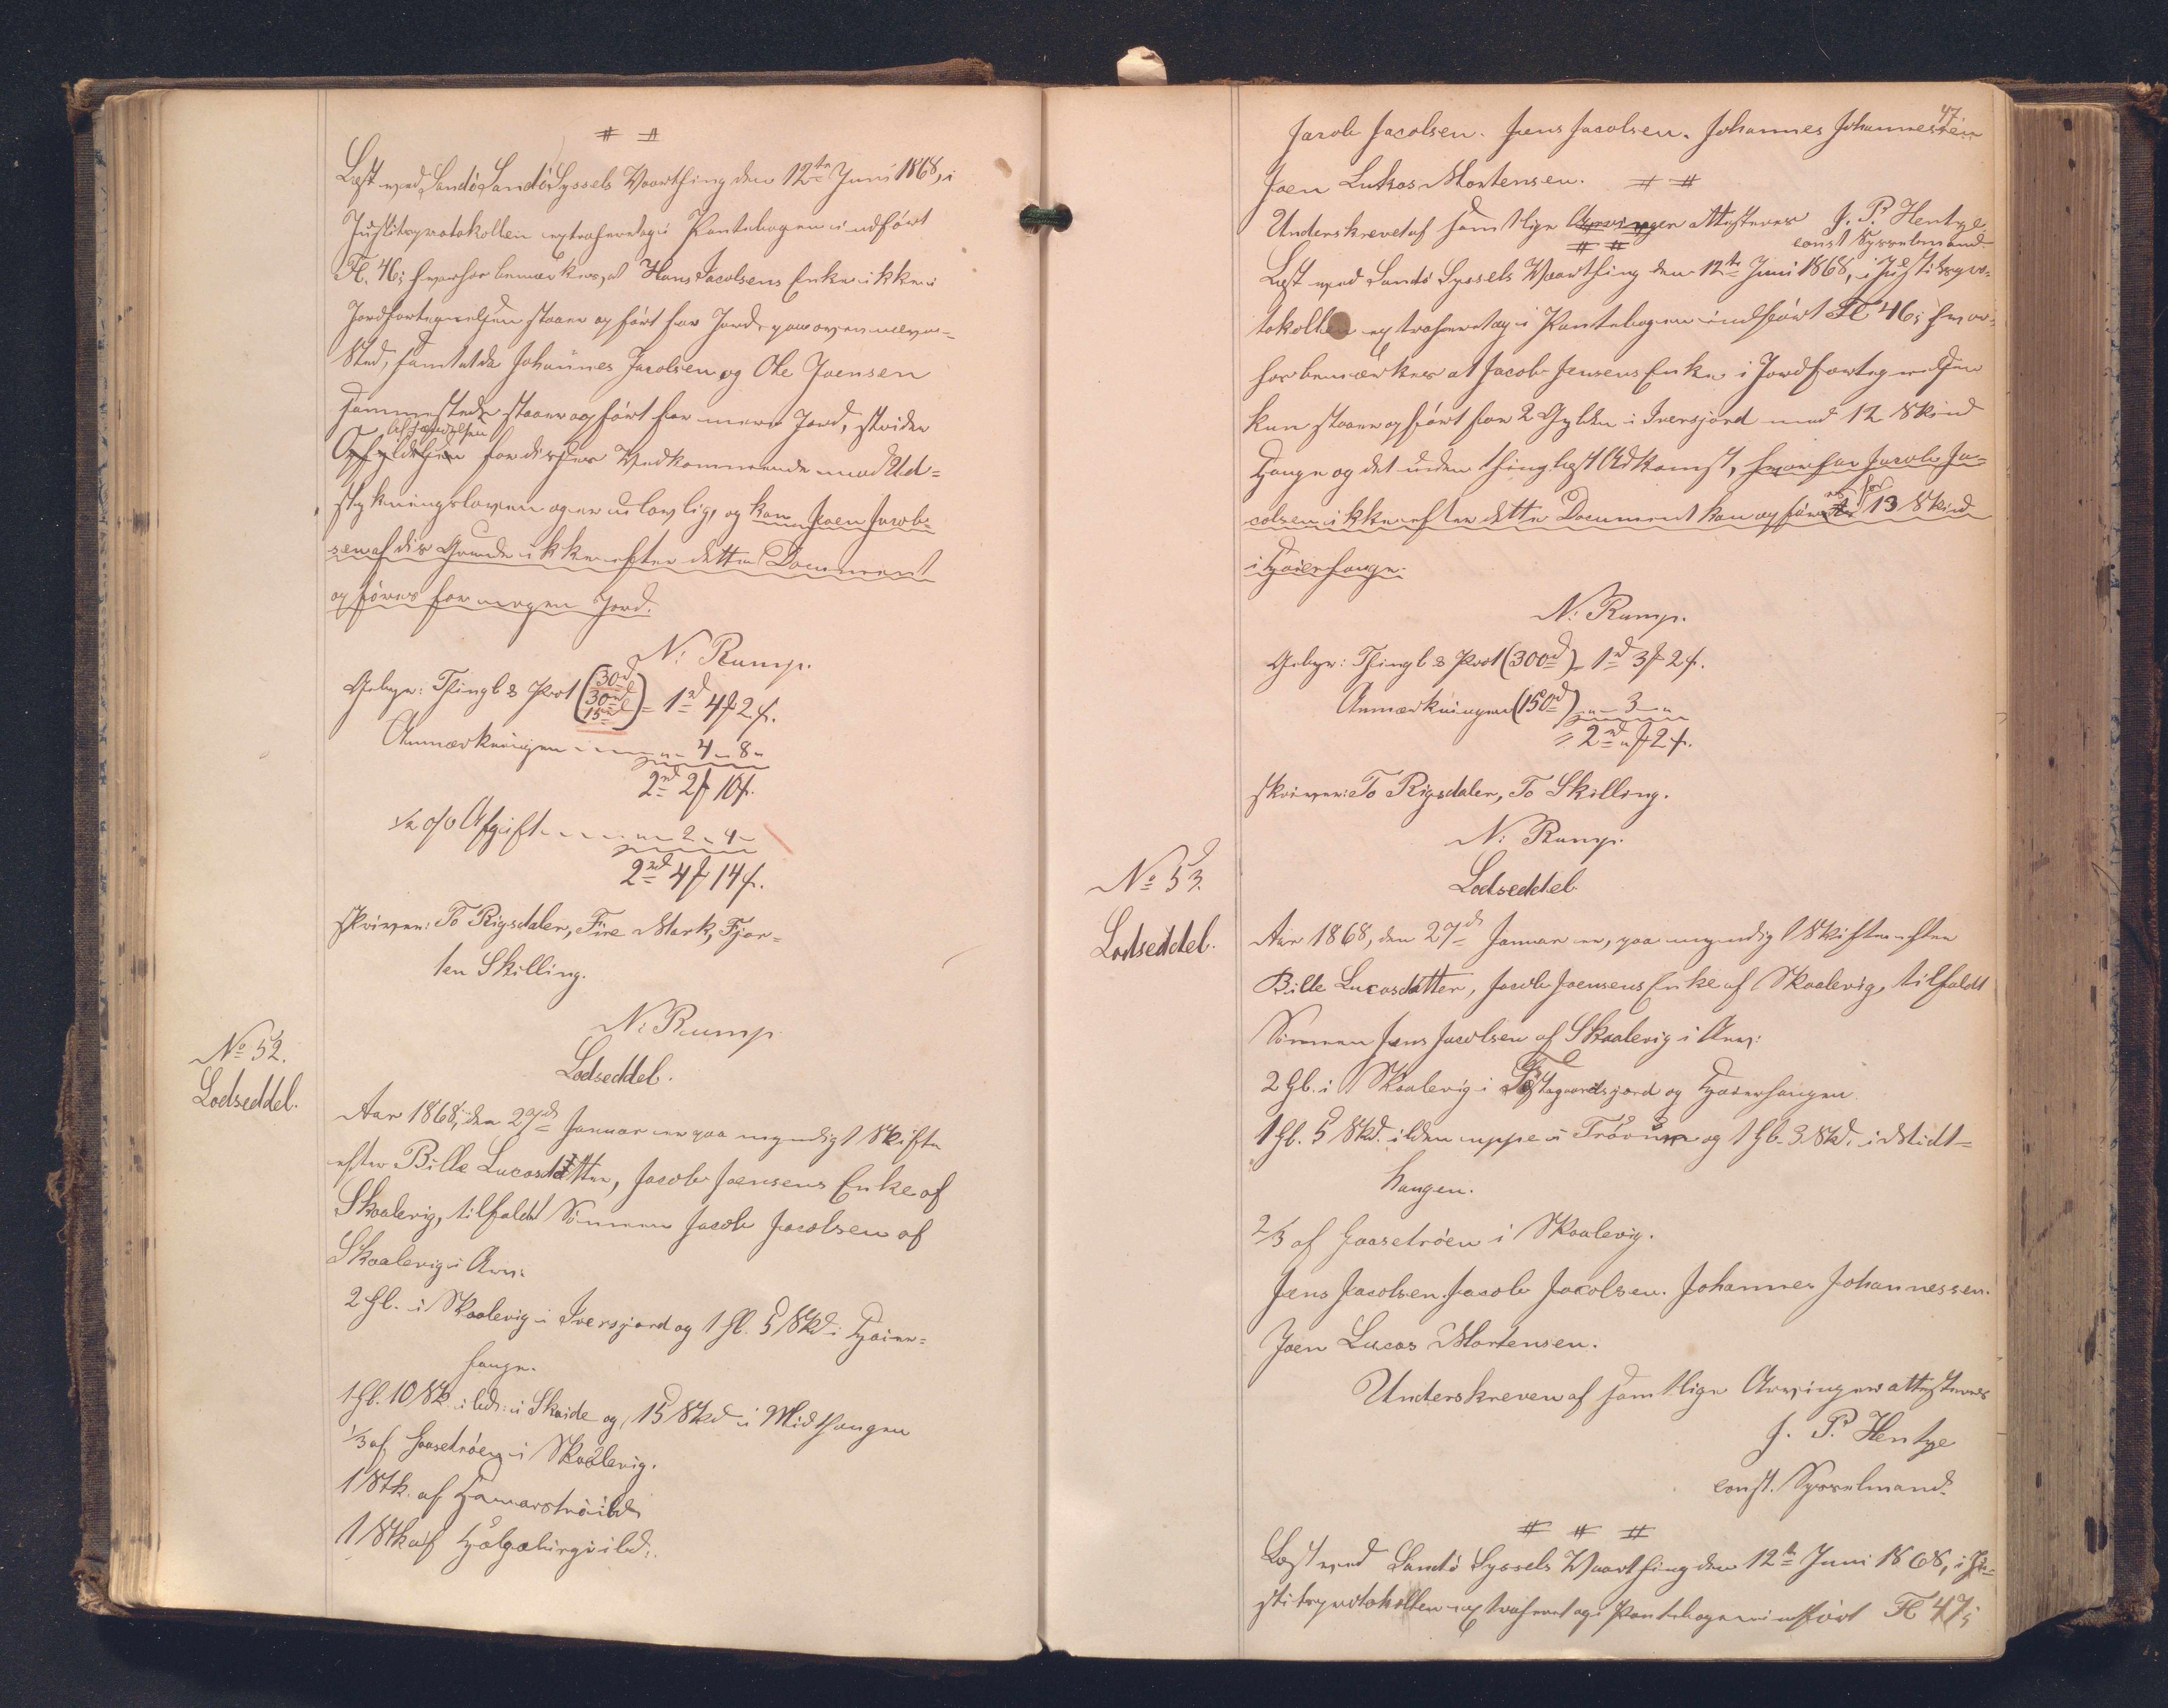 # #
Læst ved Sandö Sandö Syssels Vaarthing den 12te Juni 1868, i
Justitsprotokollen extraheret og i Pantebogen indført
Fl. 46; hvorhos bemærkes, at Hans Jacobsens Enke ikke i
Jordfortegnelsen staaer opført for Jord paa ovennævnte
Sted, samt at da Johannes Jacobsen og Ole Joensen
sammesteds staaer opført for mere Jord, strider
Afhændelsen
Opfyldelsen for disses Vedkommende mod Ud=
stykningsloven og er ulovlig, og kan Joen Jacob=
sen af dis Grunde ikke efter dette Document
opføres for nogen Jord.
N: Rump.
Gebyr: Thingl & Prot (30rd 30rd 15rd) = 1rd 4 ƒ 2 ſ.
Anmærkningen - - - " - 4 - 8 "
2rd 2 ƒ 10 ſ.
½ o/o Afgift - - - - " - 2 - 4 -
2rd 4 ƒ 14 ſ.
skriver: To Rigsdaler, Fire Mark, Fjor=
ten Skilling.
N: Rump
No 52.
Lodseddel.
Lodseddel.
Aar 1868, den 27de Januar er paa myndigt Skifte
efter Bille Lucasdatter, Jacob Joensens Enke af
Skaalevig, tilfaldt Sönnen Jacob Jacobsen af
Skaalevig i Arv:
2 Gl. i Skaalevig i Iversjord og 1 Gl. 5 Skd i Hjaier=
hauge.
1 Gl. 10 Sk. i lid: i Skeide og 15 Skd i Midthaugen
1/3 af Gaasetröen i Skaalevig.
1 Stk. af
1 Stk af
47
Jacob Jacobsen. Jens Jacobsen. Johannes Johannessen
Joen Lukas Mortensen. # #
Underskrevet af samtlige Arvinger attesteres J. P. Hentze
# # const Sysselmand
Læst ved Sandö Syssels Vaarthing den 12te Juni 1868, i Justitspro=
tokollen extraheret og i Pantebogen indført Fl 46; hvor=
hos bemærkes at Jacob Jensens Enke i Jordfortegnelsen
kun staaer opført for 2 Gylden i Iversjord med 12 Skind
Hauge og det uden thinglæst Adkomst, hvorfor Jacob Ja=
cobsen ikke efter dette Document kan opføres for 13 Skind
i Hjaierhauge.
N: Rump.
Gebyr: Thingl & Prot (300rd) - 1rd 3 ƒ 2 ſ.
Anmærkningen (150rd) - " - 3 - "
= 2rd " ƒ 2 ſ.
skriver: To Rigsdaler, To Skilling.
N: Rump.
No 53.
Lodseddel.
Lodseddel
Aar 1868, den 27de Januar er, paa myndigt Skifte efter
Bille Lucasdatter, Jacob Joensens Enke af Skaalevig, tilfaldt
Sönnen Jens Jacobsen af Skaalevig i Arv:
2 Gl. i Skaalevig i og Hjaierhaugen.
1 Gl. 5 Skd. i lden uppe i Trövum og 1 Gl. 3 Skd. i Midt=
haugen.
2/3 af Gaasetröen i Skaalevig.
Jens Jacobsen. Jacob Jacobsen. Johannes Johannessen.
Joen Lucas Mortensen.
Underskreven af samtlige Arvinger attesteres
J. P. Hentze
const. Sysselmand.
# # #
Læst ved Sandö Syssels Vaarthing den 12te Juni 1868, i Ju=
stitsprotokollen extraheret og i Pantebogen indført Fl 47;